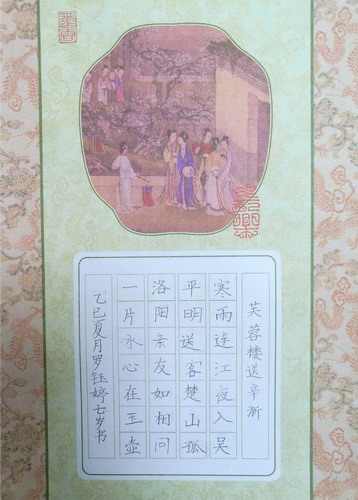 芙蓉楼送辛渐
寒雨连江夜入吴
平明送客楚山孤
洛阳亲友如相问
一片冰心在玉壶
乙巳夏月罗钰婷七岁书